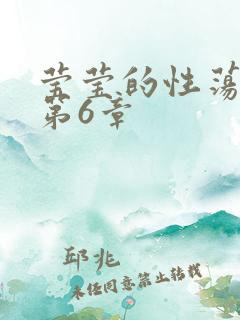 莹莹的性荡
第6章
邱兆
未经同意禁止转载